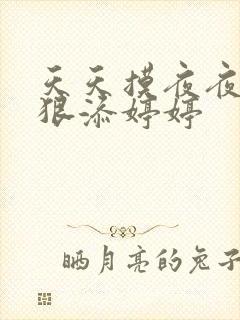 天天摸夜夜
狠添婷婷
晒月亮的兔子